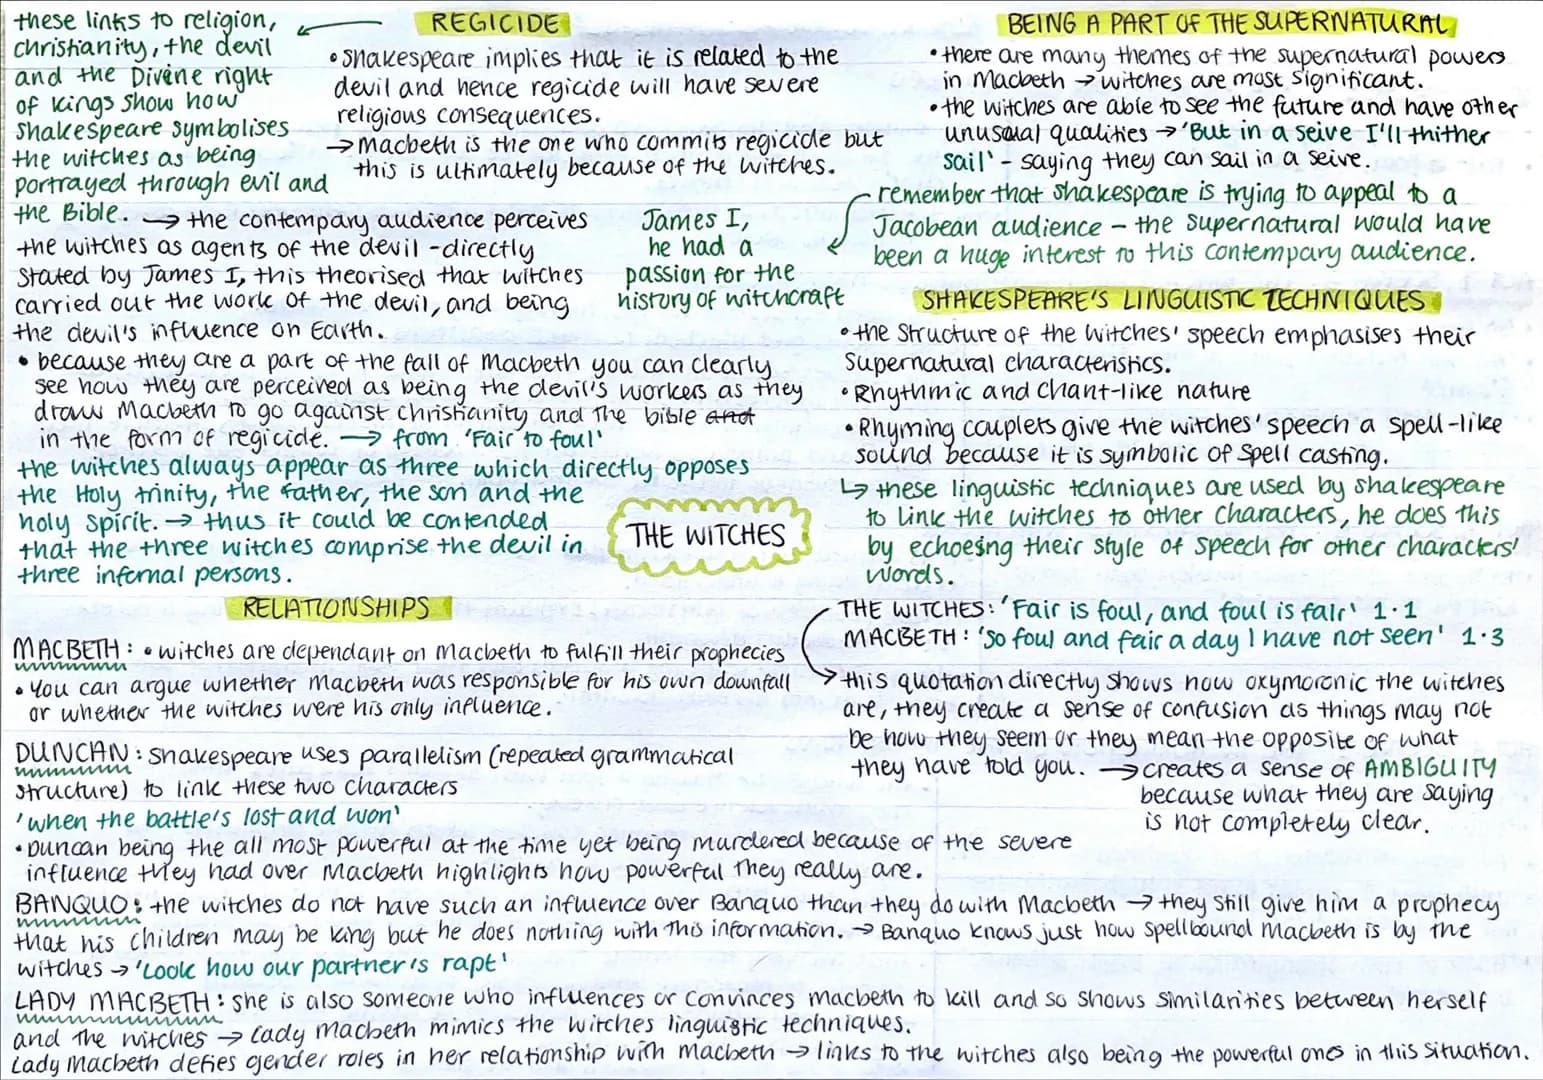 REGICIDE
• Shakespeare implies that it is related to the
devil and hence regicide will have severe
religious consequences.
→ Macbeth is the one who commits regicide but
this is ultimately because of the witches.
these links to religion,
christianity, the devil
and the Divine right
of kings show how
Shakespeare symbolises
the witches as being
portrayed through evil and
the Bible. → the contempary audience perceives
the witches as agents of the devil - directly
stated by James I, this theorised that witches
carried out the work of the devil, and being
the devil's influence on Earth.
James I,
he had a
passion for the
history of witchcraft
• because they are a part of the fall of Macbeth you can clearly
see how they are perceived as being the devil's workers as they
draw Macbeth to go against christianity and the bible and
in the form of regicide. → from 'Fair to foul'
the witches always appear as three which directly opposes
the Holy trinity, the father, the son and the
holy spirit. → thus it could be contended
that the three witches comprise the devil in
three infernal persons.
THE WITCHES
BEING A PART OF THE SUPERNATURAL
• there are many themes of the supernatural powers
in Macbeth → witches are most significant.
• the witches are able to see the future and have other
unusual qualities → 'But in a seive I'll thither
sail' - saying they can sail in a seive.
remember that Shakespeare is trying to appeal to a
Jacobean audience - the supernatural would have
been a huge interest to this contempary audience.
SHAKESPEARE'S LINGUISTIC TECHNIQUES
• the structure of the witches' speech emphasises their
supernatural characteristics.
• Rhythmic and chant-like nature
• Rhyming couplets give the witches' speech a spell-like
sound because it is symbolic of spell casting.
↳ these linguistic techniques are used by shakespeare
to link the witches to other characters, he does this
by echoesing their style of speech for other characters'
words.
THE WITCHES: 'Fair is foul, and foul is fair' 1.1
MACBETH: 'So foul and fair a day I have not seen' 1.3
→ this quotation directly shows how oxymoronic the witches
are, they create a sense of confusion as things may not
be how they seem or they mean the opposite of what
they have told you. → creates a sense of AMBIGUITY
because what they are saying
is not completely clear.
RELATIONSHIPS
MACBETH: • witches are dependant on Macbeth to fulfill their prophecies
• You can argue whether Macbeth was responsible for his own downfall
or whether the witches were his only influence.
DUNCAN: Shakespeare uses parallelism (repeated grammatical
structure) to link these two characters
'when the battle's lost and won'
• Duncan being the all most powerful at the time yet being murdered because of the severe
influence they had over Macbeth highlights how powerful they really are.
BANQUO: the witches do not have such an influence over Banquo than they do with Macbeth → they still give him a prophecy
that his children may be king but he does nothing with this information. → Banquo knows just how spellbound Macbeth is by the
witches → 'Look how our partner's rapt'
LADY MACBETH: she is also someone who influences or convinces macbeth to kill and so shows similarities between herself
and the witches → Lady macbeth mimics the witches linguistic techniques.
Lady Macbeth defies gender roles in her relationship with macbeth → links to the witches also being the powerful ones in this situation.